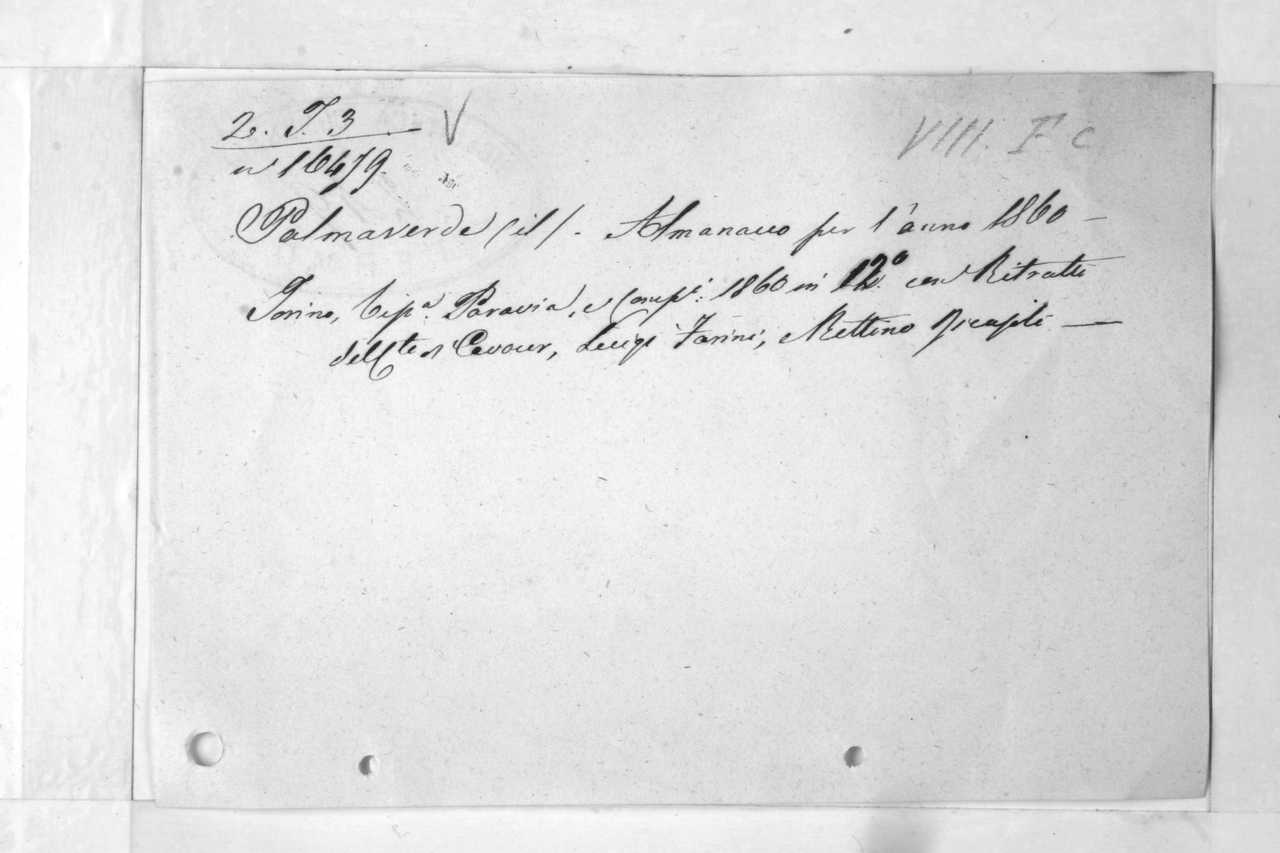 2. T. 3 V
VIII. F c
n 16479
Palmaverde (il). Almanacco per l'anno 1860 —
Torino, tipª. Paravia, e Compⁱ. 1860 in 12º. con Ritratti
del Cte Cavour, Luigi Farini, e Bettino Ricasoli —